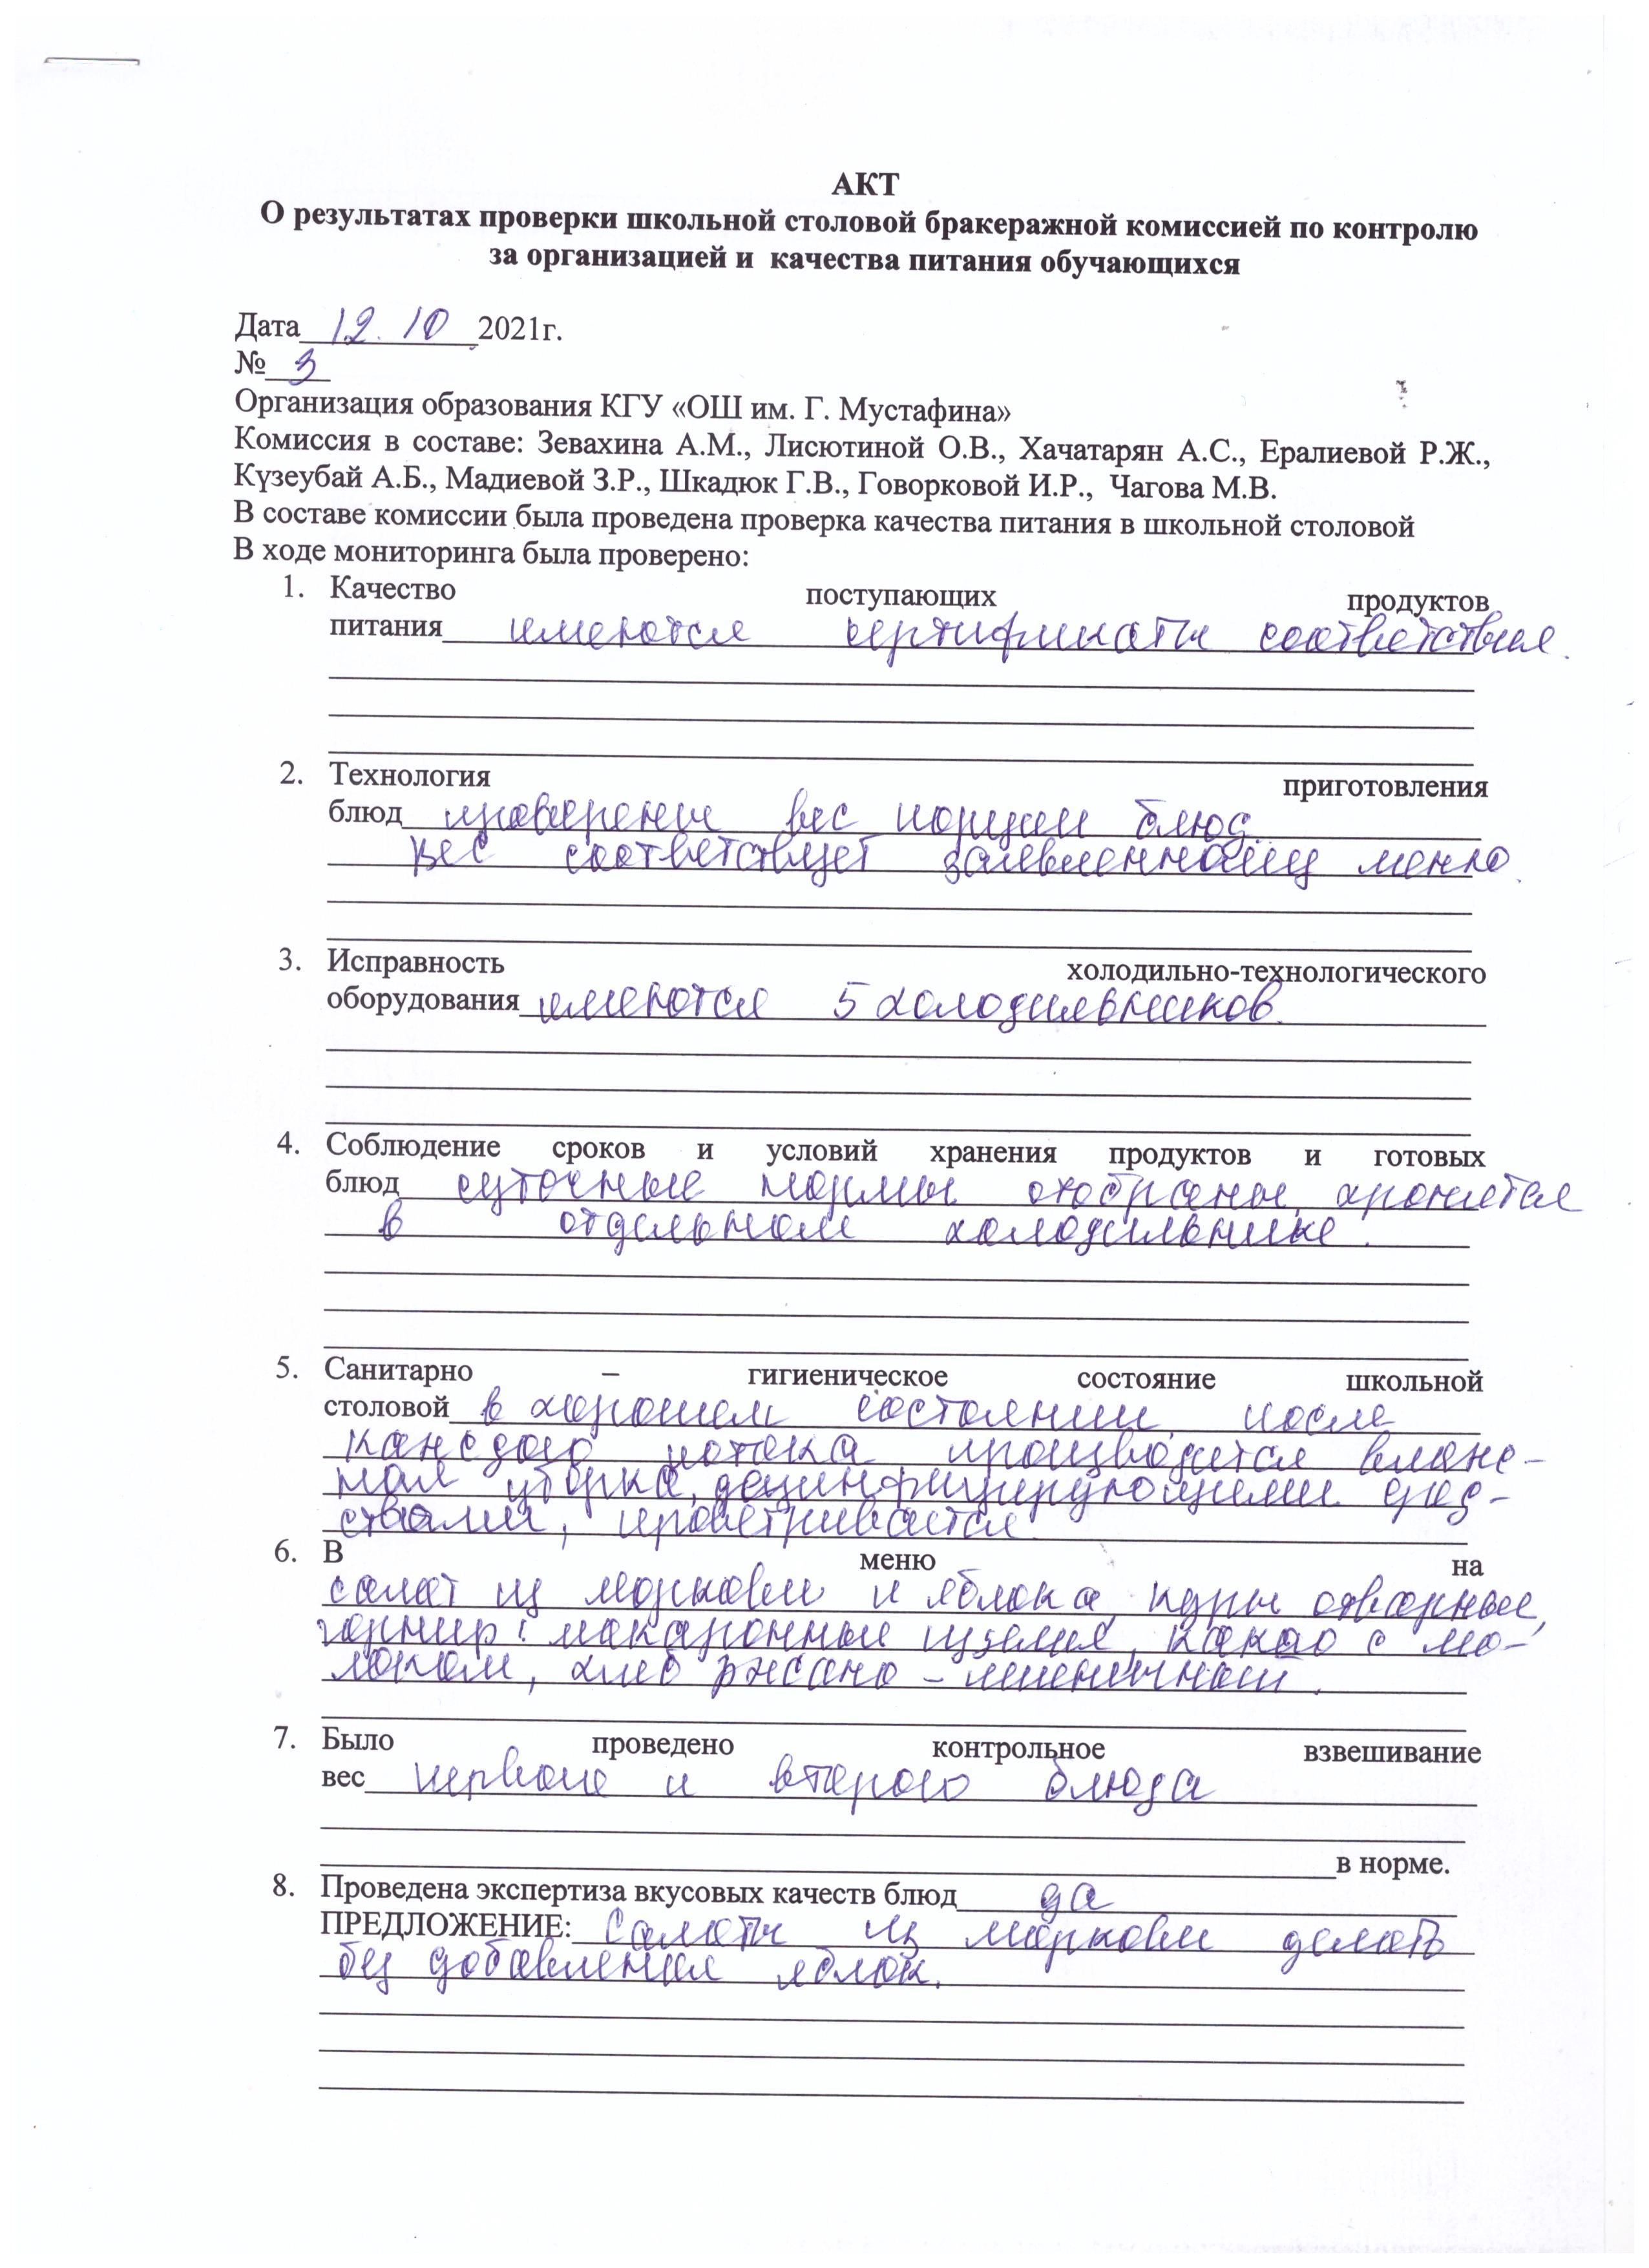 АКТ
О результатах проверки школьной столовой бракеражной комиссией по контролю
за организацией и качества питания обучающихся
Дата 12. 10 2021г.
№ 3
Организация образования КГУ «ОШ им. Г. Мустафина»
Комиссия в составе: Зевахина А.М., Лисютиной О.В., Хачатарян А.С., Ералиевой Р.Ж.,
Күзеубай А.Б., Мадиевой З.Р., Шкадюк Г.В., Говорковой И.Р., Чагова М.В.
В составе комиссии была проведена проверка качества питания в школьной столовой
В ходе мониторинга была проверено:
1. Качество поступающих продуктов
питания имеются сертификаты соответствия.
2. Технология приготовления
блюд проверены вес порции блюд
вес соответствует заявленному меню.
3. Исправность холодильно-технологического
оборудования имеются 5 холодильников.
4. Соблюдение сроков и условий хранения продуктов и готовых
блюд суточные нормы отобраны, хранятся
в отдельном холодильнике.
5. Санитарно – гигиеническое состояние школьной
столовой в хорошем состоянии, после
каждого потока производится влаж-
ная уборка, дезинфицирующими сред-
ствами, проветривается.
6. В меню на
салат из моркови и яблока, куры отварные,
гарнир: макаронные изделия, какао с мо-
локом, хлеб ржано - пшеничный.
7. Было проведено контрольное взвешивание
вес первого и второго блюда
в норме.
8. Проведена экспертиза вкусовых качеств блюд да
ПРЕДЛОЖЕНИЕ: Салаты из моркови делать
без добавления яблок.